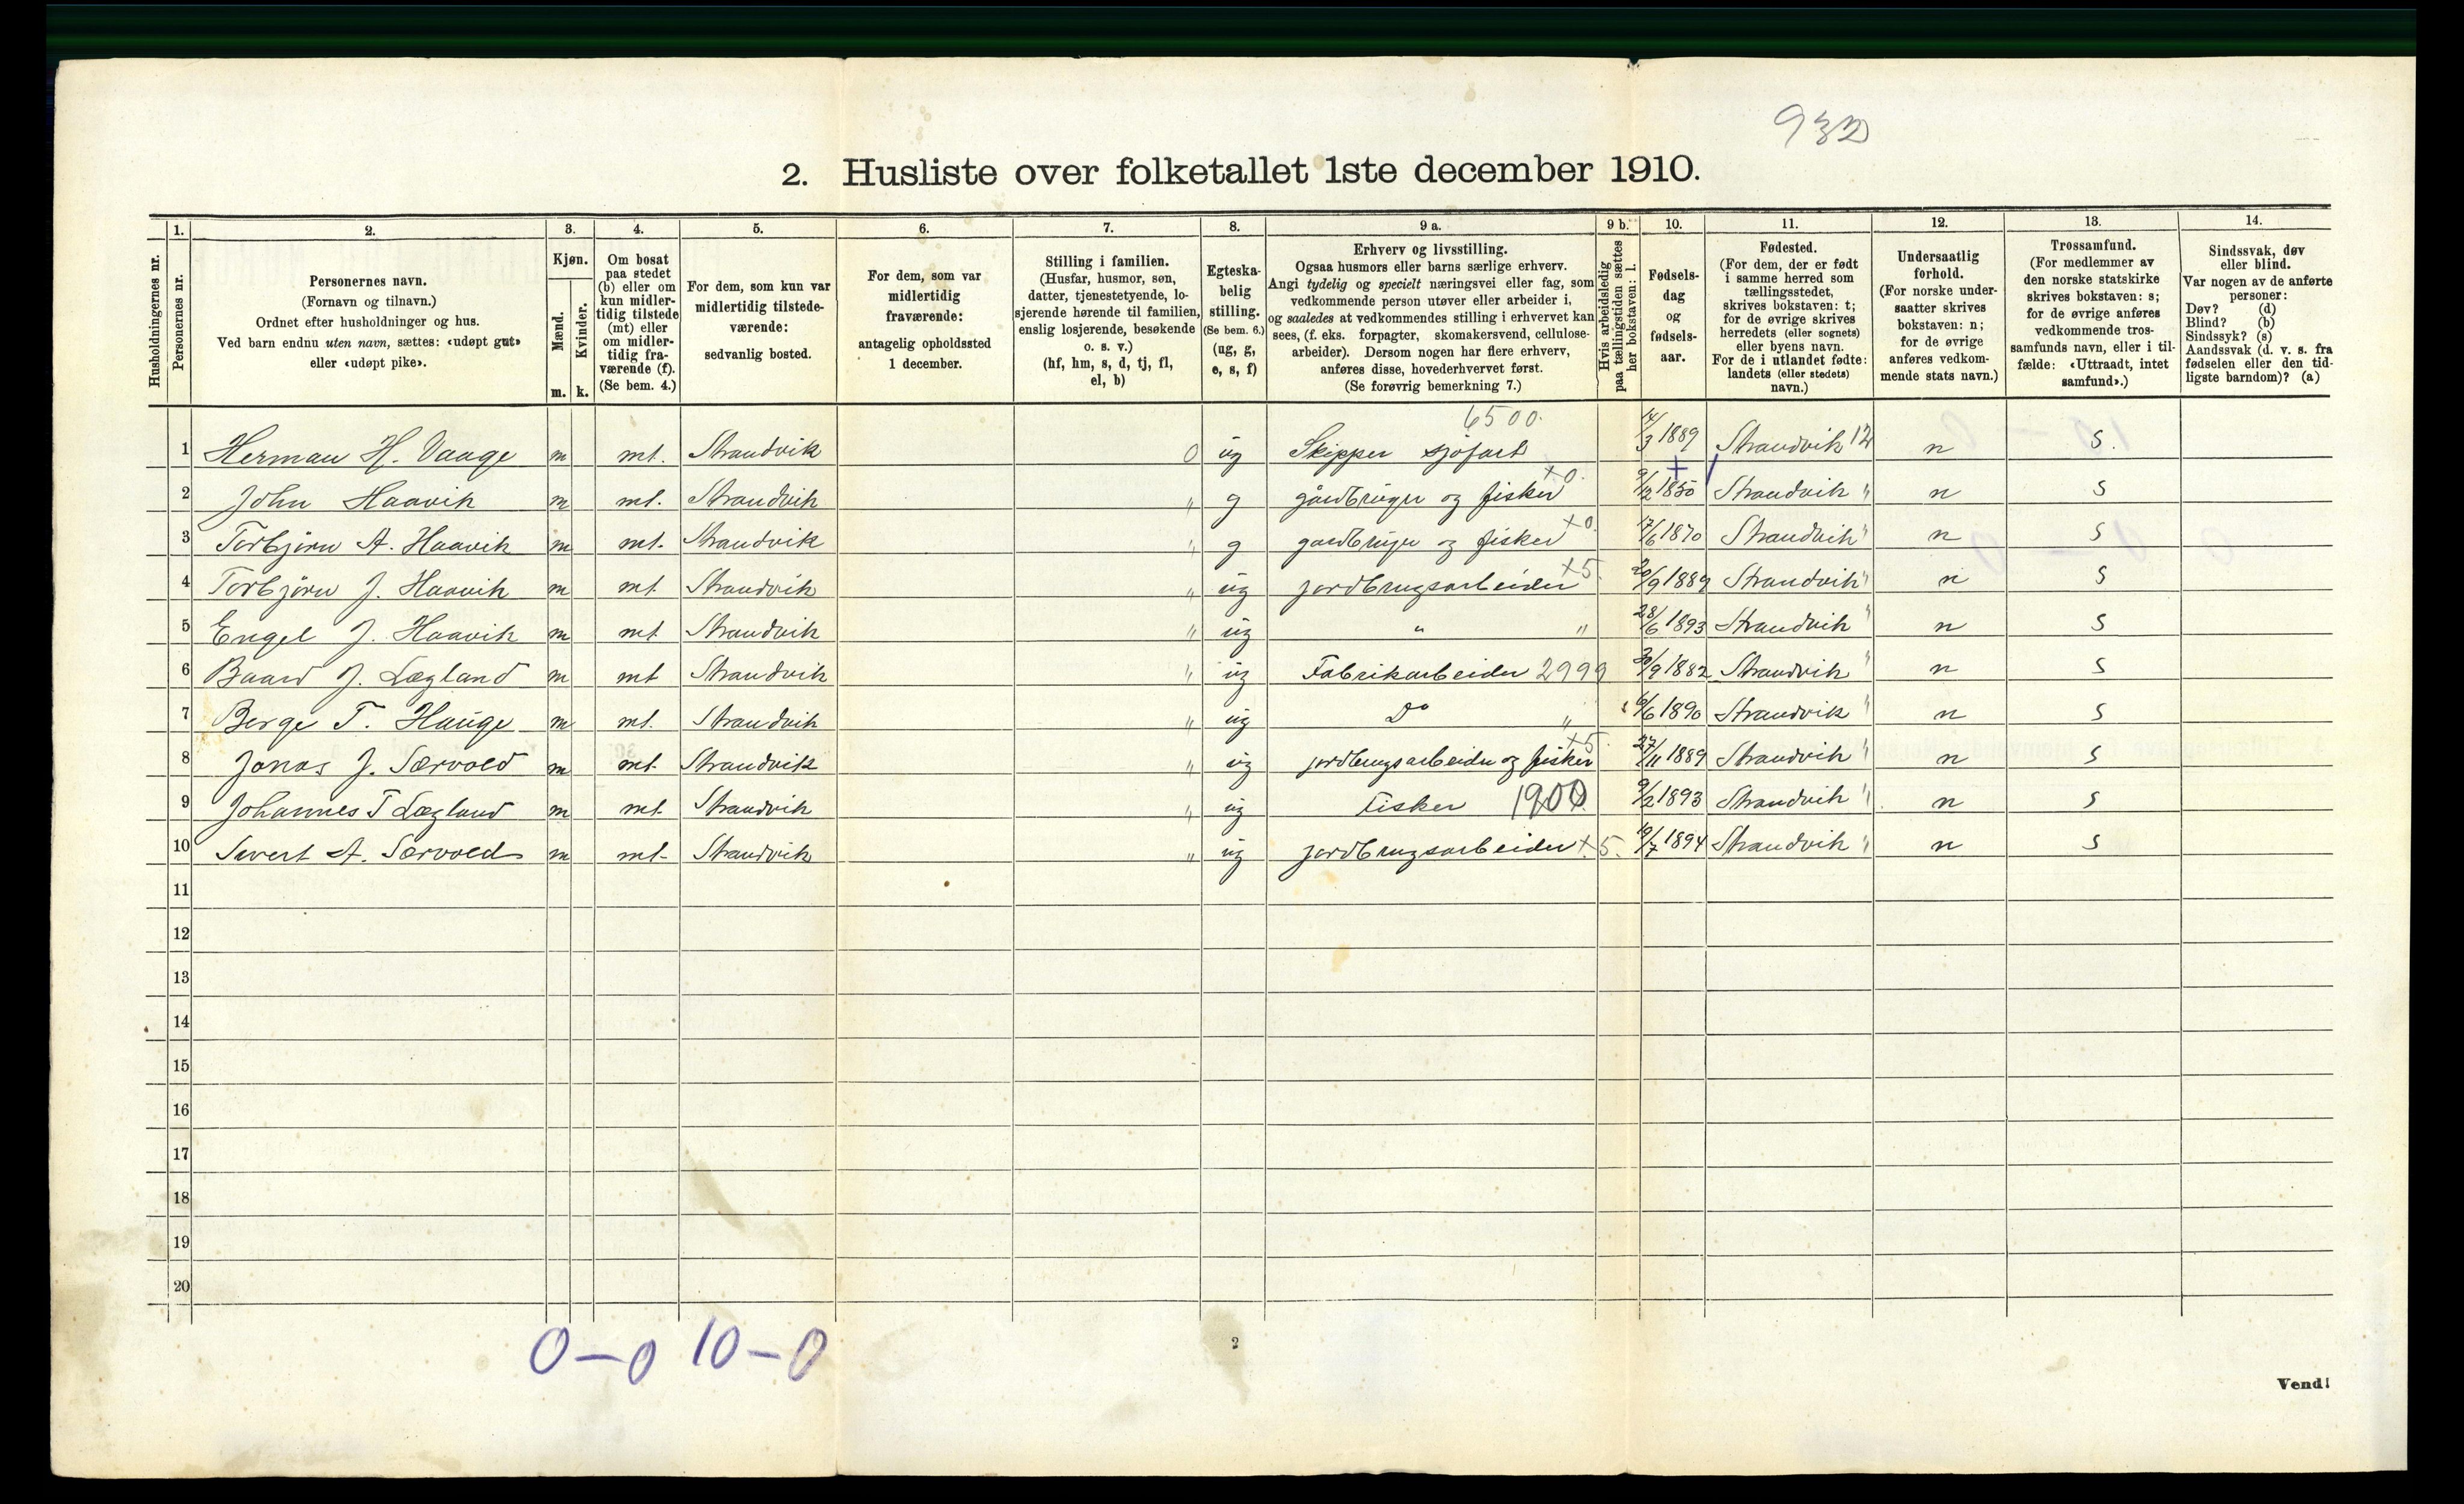 932
2. Husliste over folketallet 1ste december 1910.
Husholdningernes nr.
1. Personernes nr.
2. Personernes navn.
(Fornavn og tilnavn.)
Ordnet efter husholdninger og hus.
Ved barn endnu uten navn, sættes: «udøpt gut»
eller «udøpt pike».
3. Kjøn.
Mænd. Kvinder.
m. k.
4. Om bosat
paa stedet
(b) eller om
kun midler-
tidig tilstede
(mt) eller
om midler-
tidig fra-
værende (f).
(Se bem. 4.)
5. For dem, som kun var
midlertidig tilstede-
værende:
sedvanlig bosted.
6. For dem, som var
midlertidig
fraværende:
antagelig opholdssted
1 december.
7. Stilling i familien.
(Husfar, husmor, søn,
datter, tjenestetyende, lo-
sjerende hørende til familien,
enslig losjerende, besøkende
o. s. v.)
(hf, hm, s, d, tj, fl,
el, b)
8. Egteska-
belig
stilling.
(Se bem. 6.)
(ug, g,
e, s, f)
9 a. Erhverv og livsstilling.
Ogsaa husmors eller barns særlige erhverv.
Angi tydelig og specielt næringsvei eller fag, som
vedkommende person utøver eller arbeider i,
og saaledes at vedkommendes stilling i erhvervet kan
sees, (f. eks. forpagter, skomakersvend, cellulose-
arbeider). Dersom nogen har flere erhverv,
anføres disse, hovederhvervet først.
(Se forøvrig bemerkning 7.)
9 b. Hvis arbeidsledig
paa tællingstiden sættes
her bokstaven: l.
10. Fødsels-
dag
og
fødsels-
aar.
11. Fødested.
(For dem, der er født
i samme herred som
tællingsstedet,
skrives bokstaven: t;
for de øvrige skrives
herredets (eller sognets)
eller byens navn.
For de i utlandet fødte:
landets (eller stedets)
navn.)
12. Undersaatlig
forhold.
(For norske under-
saatter skrives
bokstaven: n;
for de øvrige
anføres vedkom-
mende stats navn.)
13. Trossamfund.
(For medlemmer av
den norske statskirke
skrives bokstaven: s;
for de øvrige anføres
vedkommende tros-
samfunds navn, eller i til-
fælde: «Uttraadt, intet
samfund».)
14. Sindssvak, døv
eller blind.
Var nogen av de anførte
personer:
Døv? (d)
Blind? (b)
Sindssyk? (s)
Aandssvak (d. v. s. fra
fødselen eller den tid-
ligste barndom)? (a)
6500.
1 Herman H. Vaage m mt. Strandvik 0 ug Skipper sjøfart 14/3 1889 Strandvik 12 n S.
2 John Haavik m mt. Strandvik " g gårdbruger og fisker +0. 9/12 1850 Strandvik " n S
3 Torbjörn A. Haavik m mt. Strandvik " g gardbruger og fisker +0. 17/6 1870 Strandvik " n S
4 Torbjörn J. Haavik m mt. Strandvik " ug jordbrugsarbeider +5. 20/9 1889 Strandvik " n S
5 Engel J. Haavik m mt. Strandvik " ug " " 28/6 1893 Strandvik " n S
6 Baard J. Lægland m mt Strandvik " ug Fabrikarbeider 2999 30/9 1882 Strandvik " n S
7 Berge T. Hauge m mt. Strandvik " ug Do " 6/6 1890 Strandvik " n S
8 Jonas J. Særvold m mt. Strandvik " ug jordbrugsarbeider og fisker +5. 27/11 1889 Strandvik " n S
9 Johannes T Lægland m mt. Strandvik " ug Fisker 1900 9/2 1893 Strandvik " n S
10 Sivert A. Særvold m mt. Strandvik " ug jordbrugsarbeider +5. 19/7 1894 Strandvik " n S
11
12
13
14
15
16
17
18
19
20
0-0 10-0
2
Vend!